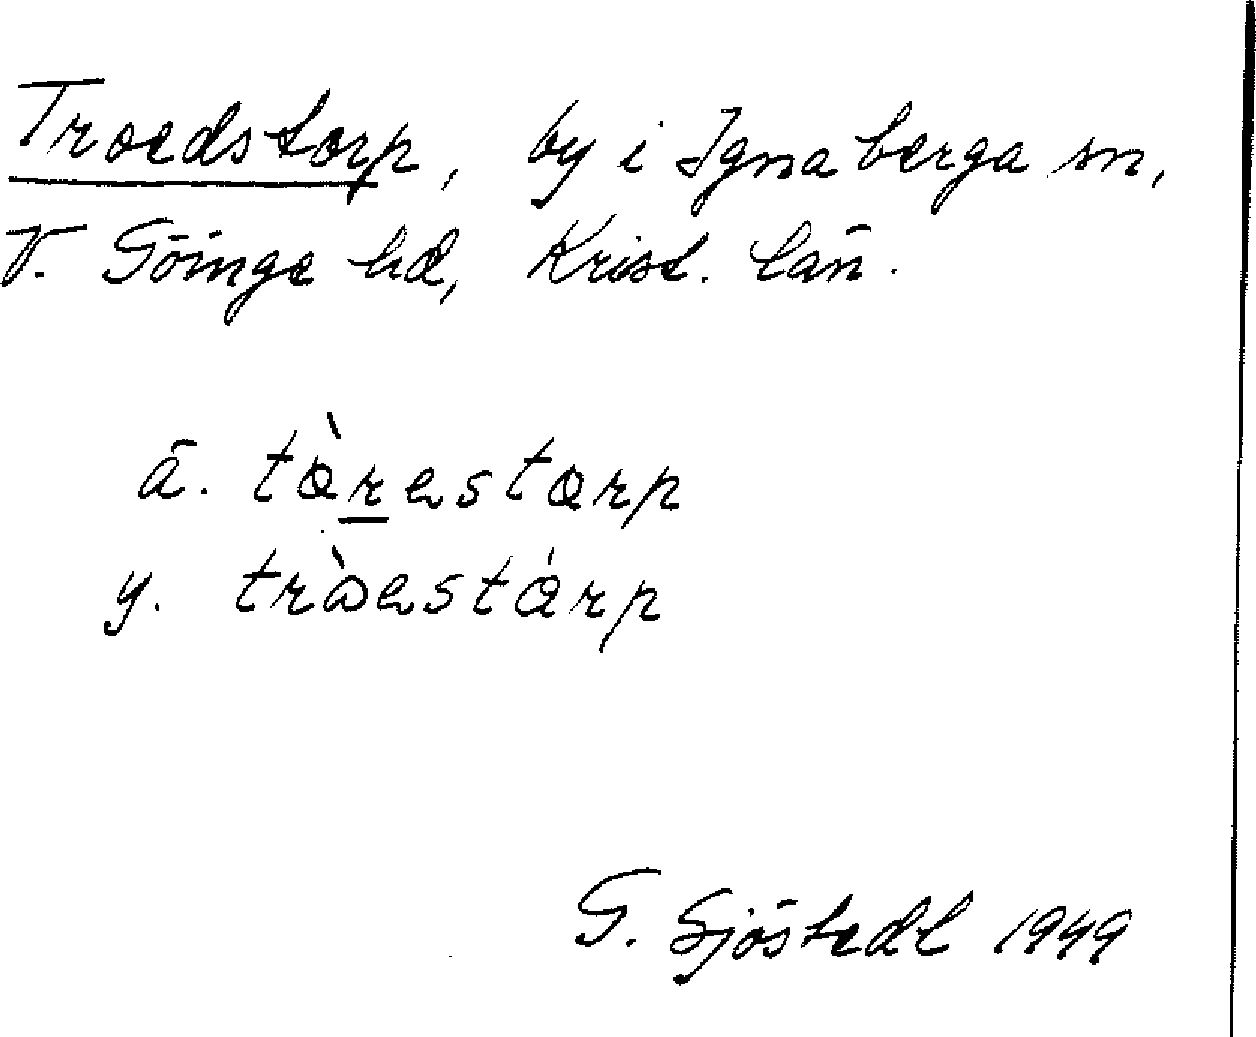 Troedstorp, by i Ignaberga sn,
V. Göinge hd, Krist. län.
ä. tòrestorp
y. tròestórp
G. Sjöstedt 1949